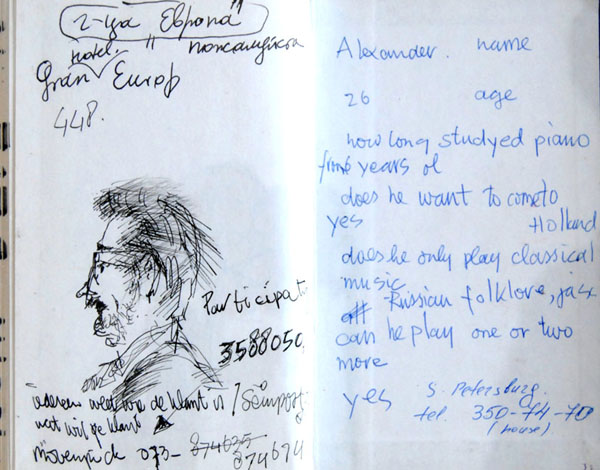 г-ца "Европа"
hotel.
Gran Europ
448.
Participat
3588050
weten wat we de klant is / Seinpost
wat wil je klant
Mövenpick 070- 874635
874674
Alexander. name
26 age
how long studyed piano
from 6 years ol
does he want to come to
yes Holland
does he only play classical
music
Russian folklore, jazz
can he play one or two
more
yes S. Petersburg.
tel. 350-74-70
(house)